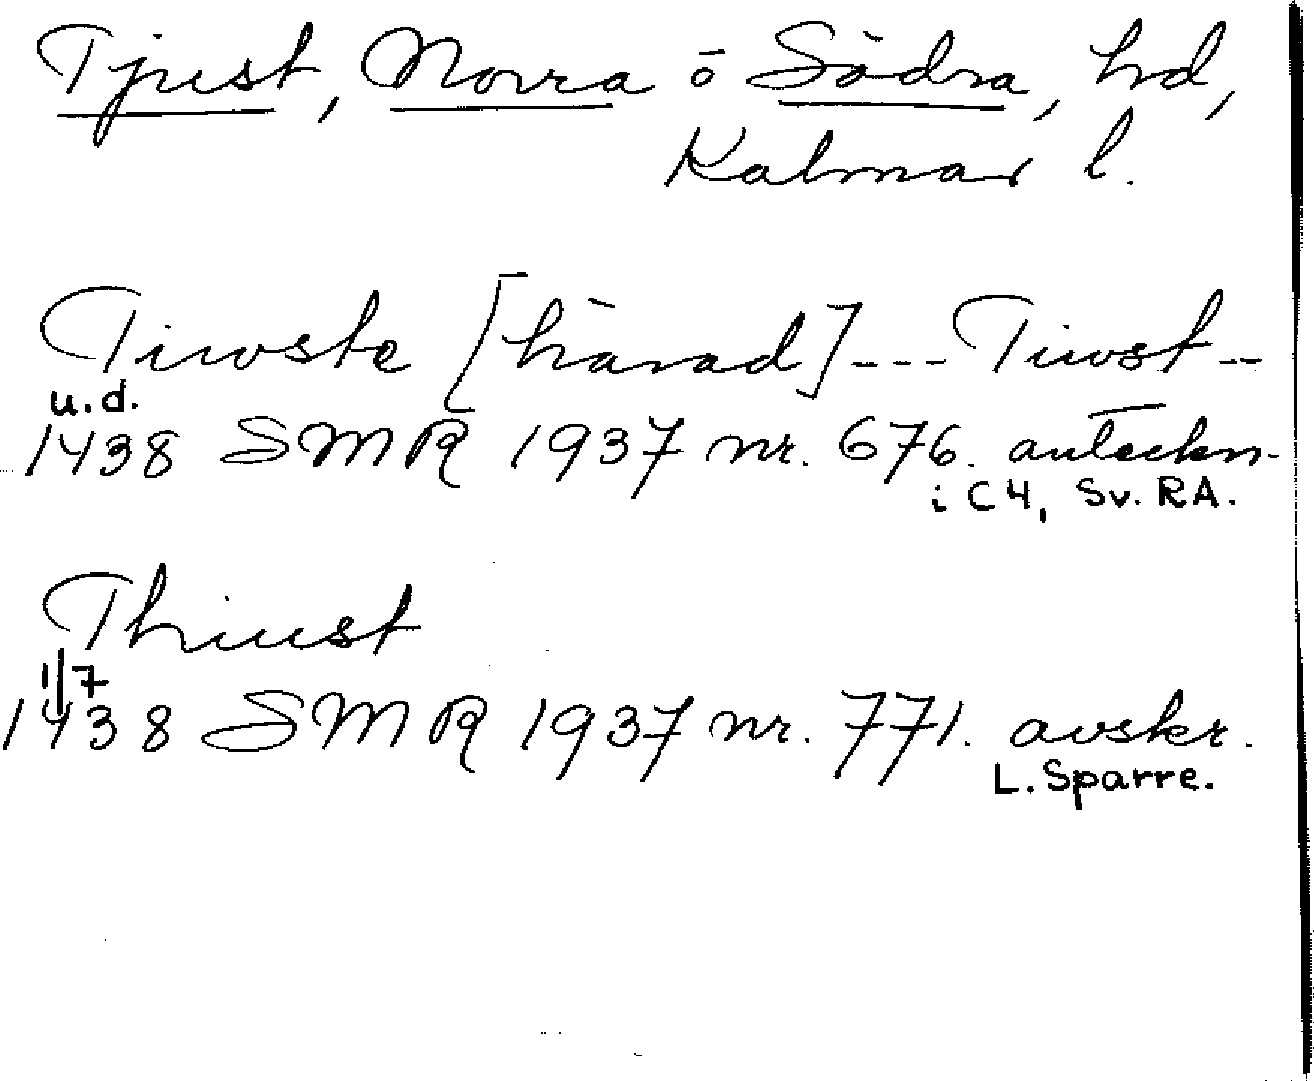 Tjust, Norra o Södra, hd,
Kalmar l.
Tiwste [härad] --- Tiwst --
u.d.
1438 SMR 1937 nr. 676. anteckn
i C4, Sv. RA.
Thiust
1/7
1438 SMR 1937 nr. 771. avskr.
L. Sparre.